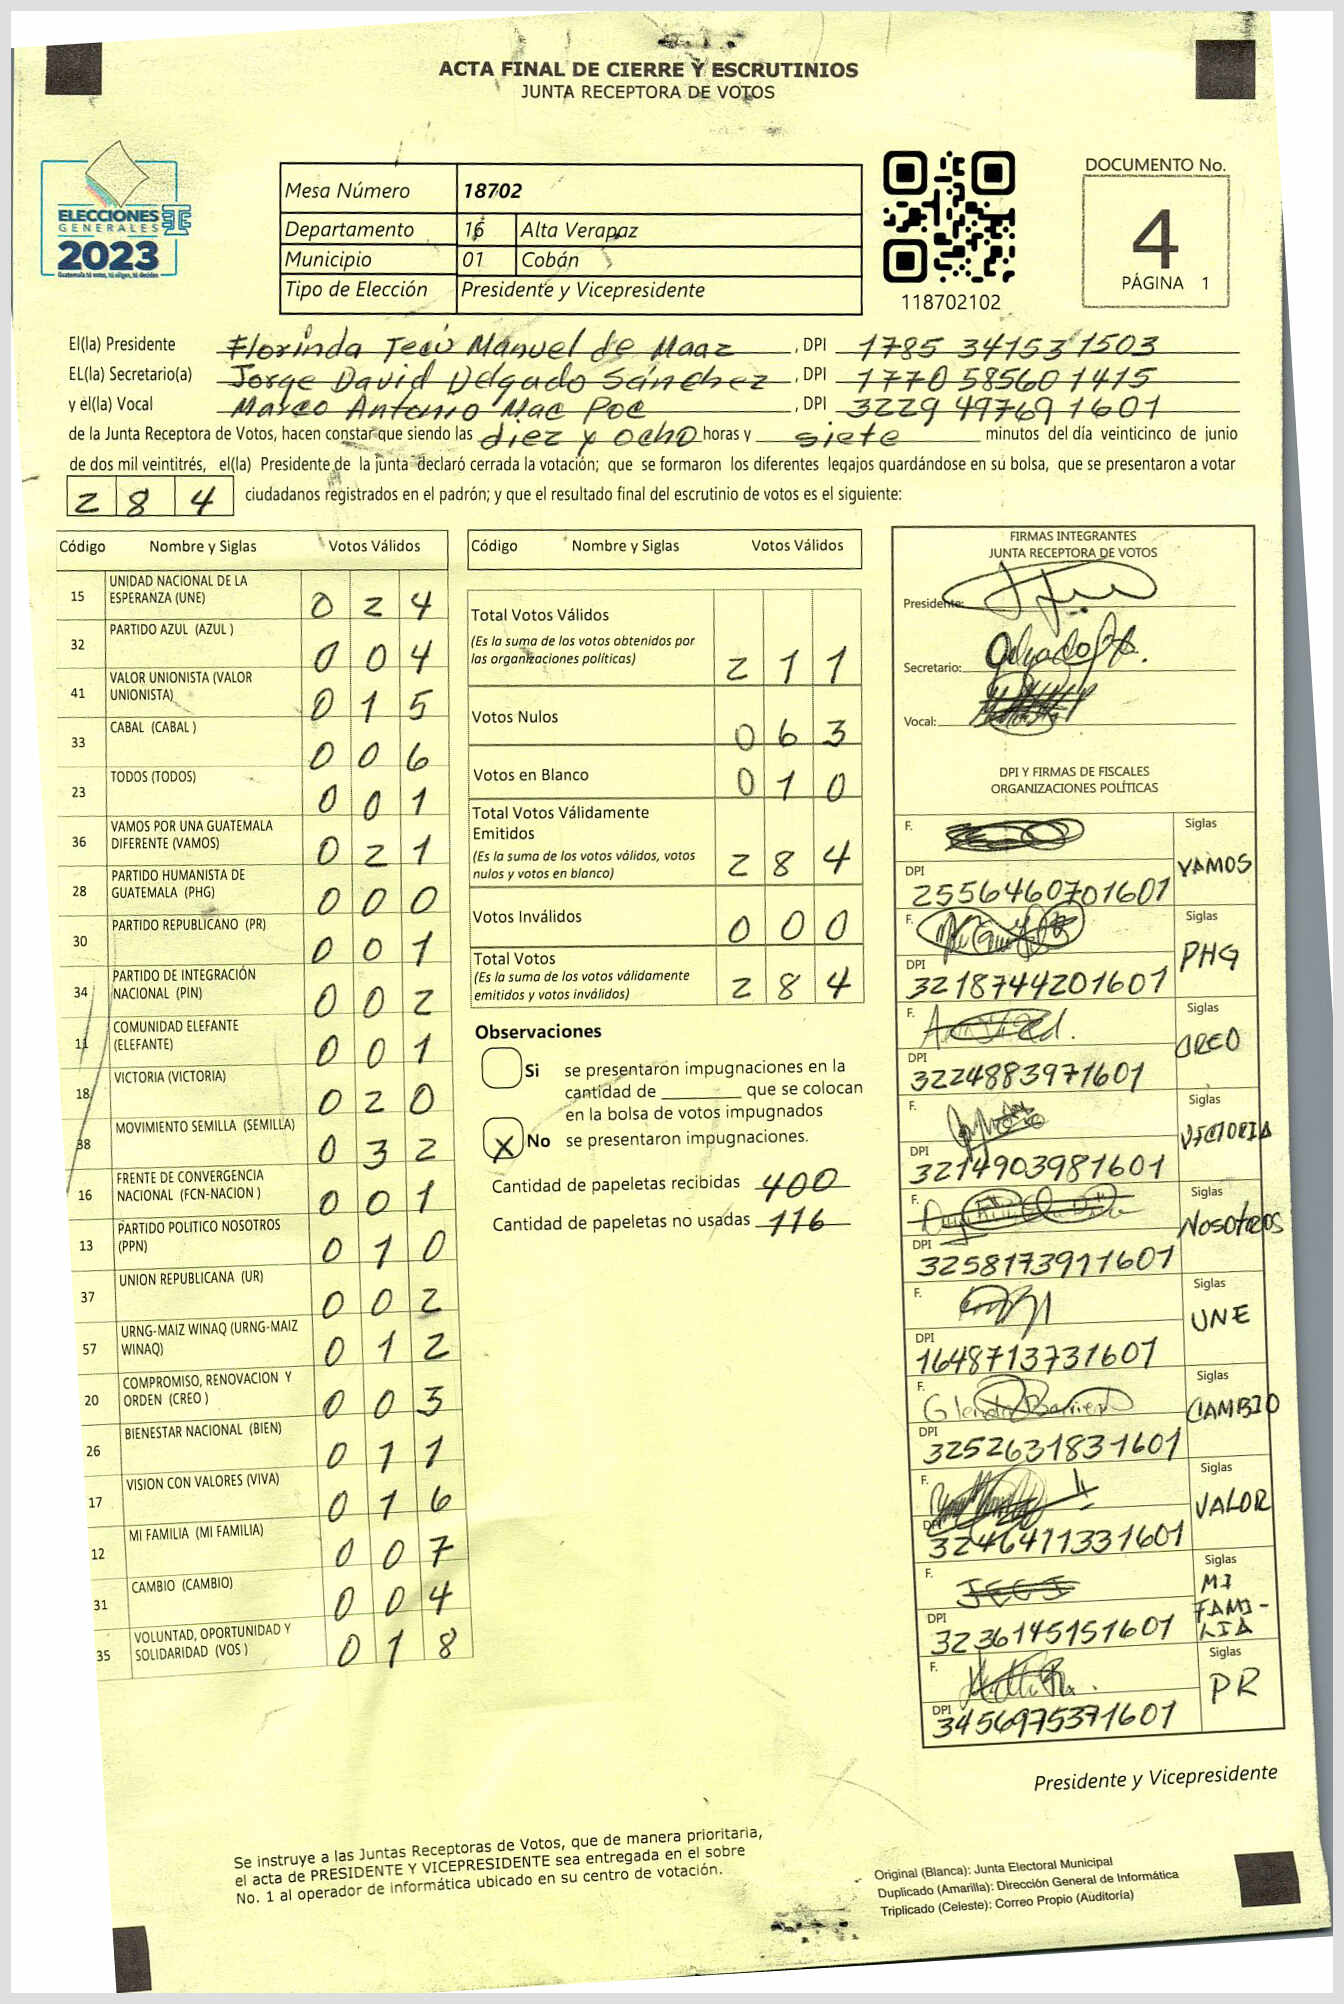 ACTA FINAL DE CIERRE Y ESCRUTINIOS
JUNTA RECEPTORA DE VOTOS
ELECCIONES
GENERALES
2023
Guatemala tú votas, tú eliges, tú decides
Mesa Número 18702
Departamento 16 Alta Verapaz
Municipio 01 Cobán
Tipo de Elección Presidente y Vicepresidente
118702102
DOCUMENTO No.
4
PÁGINA 1
El(la) Presidente Florinda Tecú Manuel de Maaz, DPI 1785 34153 1503
EL(la) Secretario(a) Jorge David Delgado Sánchez, DPI 1770 58560 1415
y el(la) Vocal Marco Antonio Mac Poc, DPI 3229 49769 1601
de la Junta Receptora de Votos, hacen constar que siendo las diez y ocho horas y siete minutos del día veinticinco de junio
de dos mil veintitrés, el(la) Presidente de la junta declaró cerrada la votación; que se formaron los diferentes legajos guardándose en su bolsa, que se presentaron a votar
284 ciudadanos registrados en el padrón; y que el resultado final del escrutinio de votos es el siguiente:
Código Nombre y Siglas Votos Válidos
15 UNIDAD NACIONAL DE LA ESPERANZA (UNE) 024
32 PARTIDO AZUL (AZUL ) 004
41 VALOR UNIONISTA (VALOR UNIONISTA) 015
33 CABAL (CABAL ) 006
23 TODOS (TODOS) 001
36 VAMOS POR UNA GUATEMALA DIFERENTE (VAMOS) 021
28 PARTIDO HUMANISTA DE GUATEMALA (PHG) 000
30 PARTIDO REPUBLICANO (PR) 001
34 PARTIDO DE INTEGRACIÓN NACIONAL (PIN) 002
11 COMUNIDAD ELEFANTE (ELEFANTE) 001
18 VICTORIA (VICTORIA) 020
38 MOVIMIENTO SEMILLA (SEMILLA) 032
16 FRENTE DE CONVERGENCIA NACIONAL (FCN-NACION ) 001
13 PARTIDO POLITICO NOSOTROS (PPN) 010
37 UNION REPUBLICANA (UR) 002
57 URNG-MAIZ WINAQ (URNG-MAIZ WINAQ) 012
20 COMPROMISO, RENOVACION Y ORDEN (CREO ) 003
26 BIENESTAR NACIONAL (BIEN) 011
17 VISION CON VALORES (VIVA) 016
12 MI FAMILIA (MI FAMILIA) 007
31 CAMBIO (CAMBIO) 004
35 VOLUNTAD, OPORTUNIDAD Y SOLIDARIDAD (VOS ) 018
Código Nombre y Siglas Votos Válidos
Total Votos Válidos
(Es la suma de los votos obtenidos por
las organizaciones políticas) 211
Votos Nulos 063
Votos en Blanco 010
Total Votos Válidamente
Emitidos
(Es la suma de los votos válidos, votos
nulos y votos en blanco) 284
Votos Inválidos 000
Total Votos
(Es la suma de los votos válidamente
emitidos y votos inválidos) 284
Observaciones
Si se presentaron impugnaciones en la
cantidad de ________ que se colocan
en la bolsa de votos impugnados
X No se presentaron impugnaciones.
Cantidad de papeletas recibidas 400
Cantidad de papeletas no usadas 116
FIRMAS INTEGRANTES
JUNTA RECEPTORA DE VOTOS
Presidente:
Secretario:
Vocal:
DPI Y FIRMAS DE FISCALES
ORGANIZACIONES POLÍTICAS
F. Siglas
DPI 2556460701601 VAMOS
F. Siglas
DPI 3218744201601 PHG
F. Siglas
DPI 3224883971601 CREO
F. Siglas
DPI 3214903981601 VICTORIA
F. Siglas
DPI 3258173911601 NOSOTROS
F. Siglas
DPI 1648713731601 UNE
F. Glenda Barrien Siglas
DPI 3252631831601 CAMBIO
F. Siglas
DPI 3246411331601 VALOR
F. Siglas
DPI 3236145151601 MI FAMI-LIA
F. Siglas
DPI 3456975371601 PR
Presidente y Vicepresidente
Se instruye a las Juntas Receptoras de Votos, que de manera prioritaria,
el acta de PRESIDENTE Y VICEPRESIDENTE sea entregada en el sobre
No. 1 al operador de informática ubicado en su centro de votación.
Original (Blanca): Junta Electoral Municipal
Duplicado (Amarilla): Dirección General de Informática
Triplicado (Celeste): Correo Propio (Auditoría)